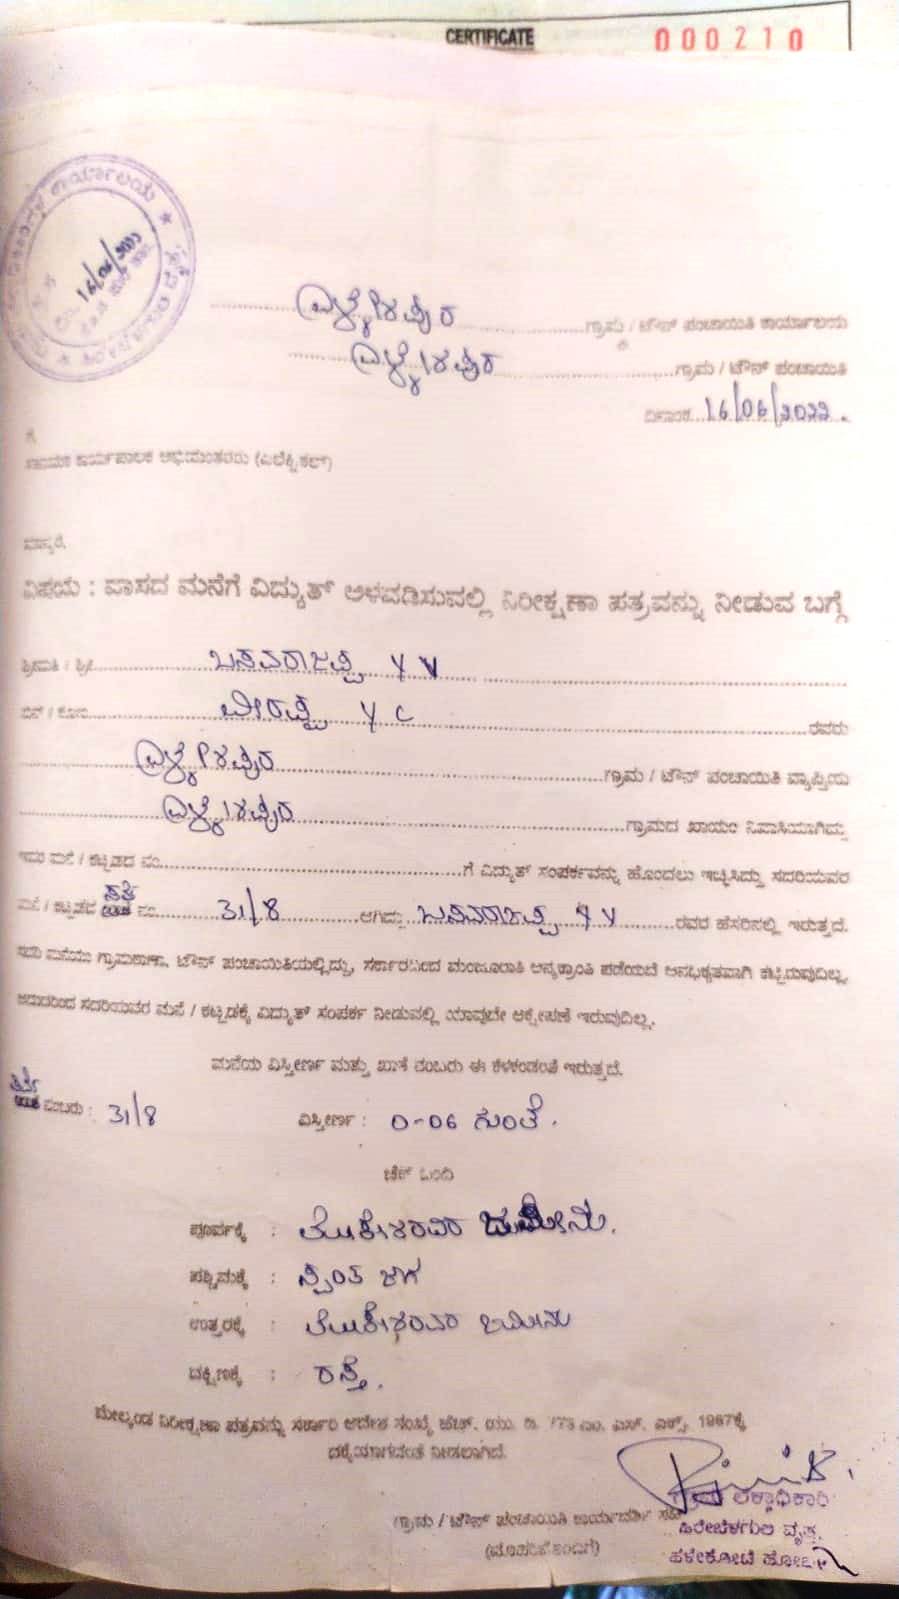 CERTIFICATE 000210
ಕಾರ್ಯಾಲಯ ★
16/06/2022
ಗ್ರಾಮ / ಟೌನ್ ಪಂಚಾಯಿತಿ ಕಾರ್ಯಾಲಯ
ಗ್ರಾಮ / ಟೌನ್ ಪಂಚಾಯಿತಿ
ದಿನಾಂಕ 16/06/2022.
ಗೆ
ಸಹಾಯಕ ಕಾರ್ಯಪಾಲಕ ಅಭಿಯಂತರರು (ಎಲೆಕ್ಟ್ರಿಕಲ್)
ಮಾನ್ಯರೆ,
ವಿಷಯ : ವಾಸದ ಮನೆಗೆ ವಿದ್ಯುತ್ ಅಳವಡಿಸುವಲ್ಲಿ ನಿರೀಕ್ಷಣಾ ಪತ್ರವನ್ನು ನೀಡುವ ಬಗ್ಗೆ
ಶ್ರೀಮತಿ / ಶ್ರೀ ಬಸವರಾಜಪ್ಪ Y V
ಬಿನ್ / ಕೋಂ ಬೀರಪ್ಪ Y C ರವರು
ಗ್ರಾಮ / ಟೌನ್ ಪಂಚಾಯಿತಿ ವ್ಯಾಪ್ತಿಯ
ಗ್ರಾಮದ ಖಾಯಂ ನಿವಾಸಿಯಾಗಿದ್ದು
ಇವರು ಮನೆ / ಕಟ್ಟಡದ ನಂ. ಗೆ ವಿದ್ಯುತ್ ಸಂಪರ್ಕವನ್ನು ಹೊಂದಲು ಇಚ್ಛಿಸಿದ್ದು ಸದರಿಯವರ
ಮನೆ / ಕಟ್ಟಡದ ನಂ. 31/8 ಆಗಿದ್ದು ಬಸವರಾಜಪ್ಪ Y V ರವರ ಹೆಸರಿನಲ್ಲಿ ಇರುತ್ತದೆ.
ಸದರಿ ಮನೆಯು ಗ್ರಾಮಠಾಣಾ, ಟೌನ್ ಪಂಚಾಯಿತಿಯಲ್ಲಿದ್ದು, ಸರ್ಕಾರದಿಂದ ಮಂಜೂರಾತಿ ಅನ್ಯಕ್ರಾಂತಿ ಪಡೆಯದೆ ಅನಧಿಕೃತವಾಗಿ ಕಟ್ಟಿರುವುದಿಲ್ಲ.
ಆದುದರಿಂದ ಸದರಿಯವರ ಮನೆ / ಕಟ್ಟಡಕ್ಕೆ ವಿದ್ಯುತ್ ಸಂಪರ್ಕ ನೀಡುವಲ್ಲಿ ಯಾವುದೇ ಆಕ್ಷೇಪಣೆ ಇರುವುದಿಲ್ಲ.
ಮನೆಯ ವಿಸ್ತೀರ್ಣ ಮತ್ತು ಖಾತೆ ನಂಬರು ಈ ಕೆಳಕಂಡಂತೆ ಇರುತ್ತದೆ.
ನಂಬರು : 31/8 ವಿಸ್ತೀರ್ಣ : 0-06 ಗುಂತೆ.
ಚೆಕ್ ಬಂದಿ
ಪೂರ್ವಕ್ಕೆ : ಜಮೀನು.
ಪಶ್ಚಿಮಕ್ಕೆ : ಸ್ವಂತ ಜಾಗ
ಉತ್ತರಕ್ಕೆ : ಜಮೀನು
ದಕ್ಷಿಣಕ್ಕೆ : ರಸ್ತೆ.
ಮೇಲ್ಕಂಡ ನಿರೀಕ್ಷಣಾ ಪತ್ರವನ್ನು ಸರ್ಕಾರಿ ಆದೇಶ ಸಂಖ್ಯೆ ಹೆಚ್. ಯು. ಡಿ. 773 ಎಂ. ಎನ್. ಎಕ್ಸ್. 1987ಕ್ಕೆ
ನೀಡಲಾಗಿದೆ.
ಗ್ರಾಮ ಲೆಕ್ಕಾಧಿಕಾರಿ
ಗ್ರಾಮ / ಟೌನ್ ಪಂಚಾಯಿತಿ ಕಾರ್ಯದರ್ಶಿ
ವೃತ್ತ,
ಹಳೇಕೋಟೆ ಹೋಬಳಿ